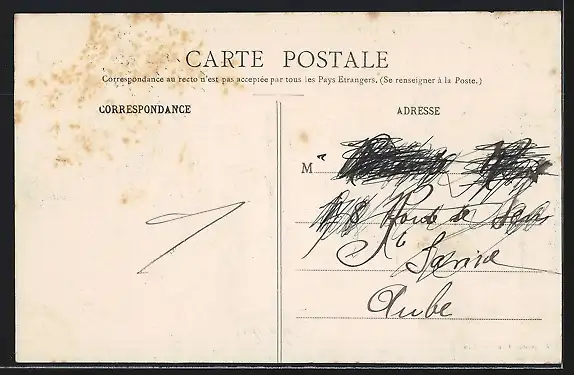 CARTE POSTALE
Correspondance au recto n'est pas acceptée par tous les Pays Etrangers. (Se renseigner à la Poste.)
CORRESPONDANCE
ADRESSE
M
de
Aube